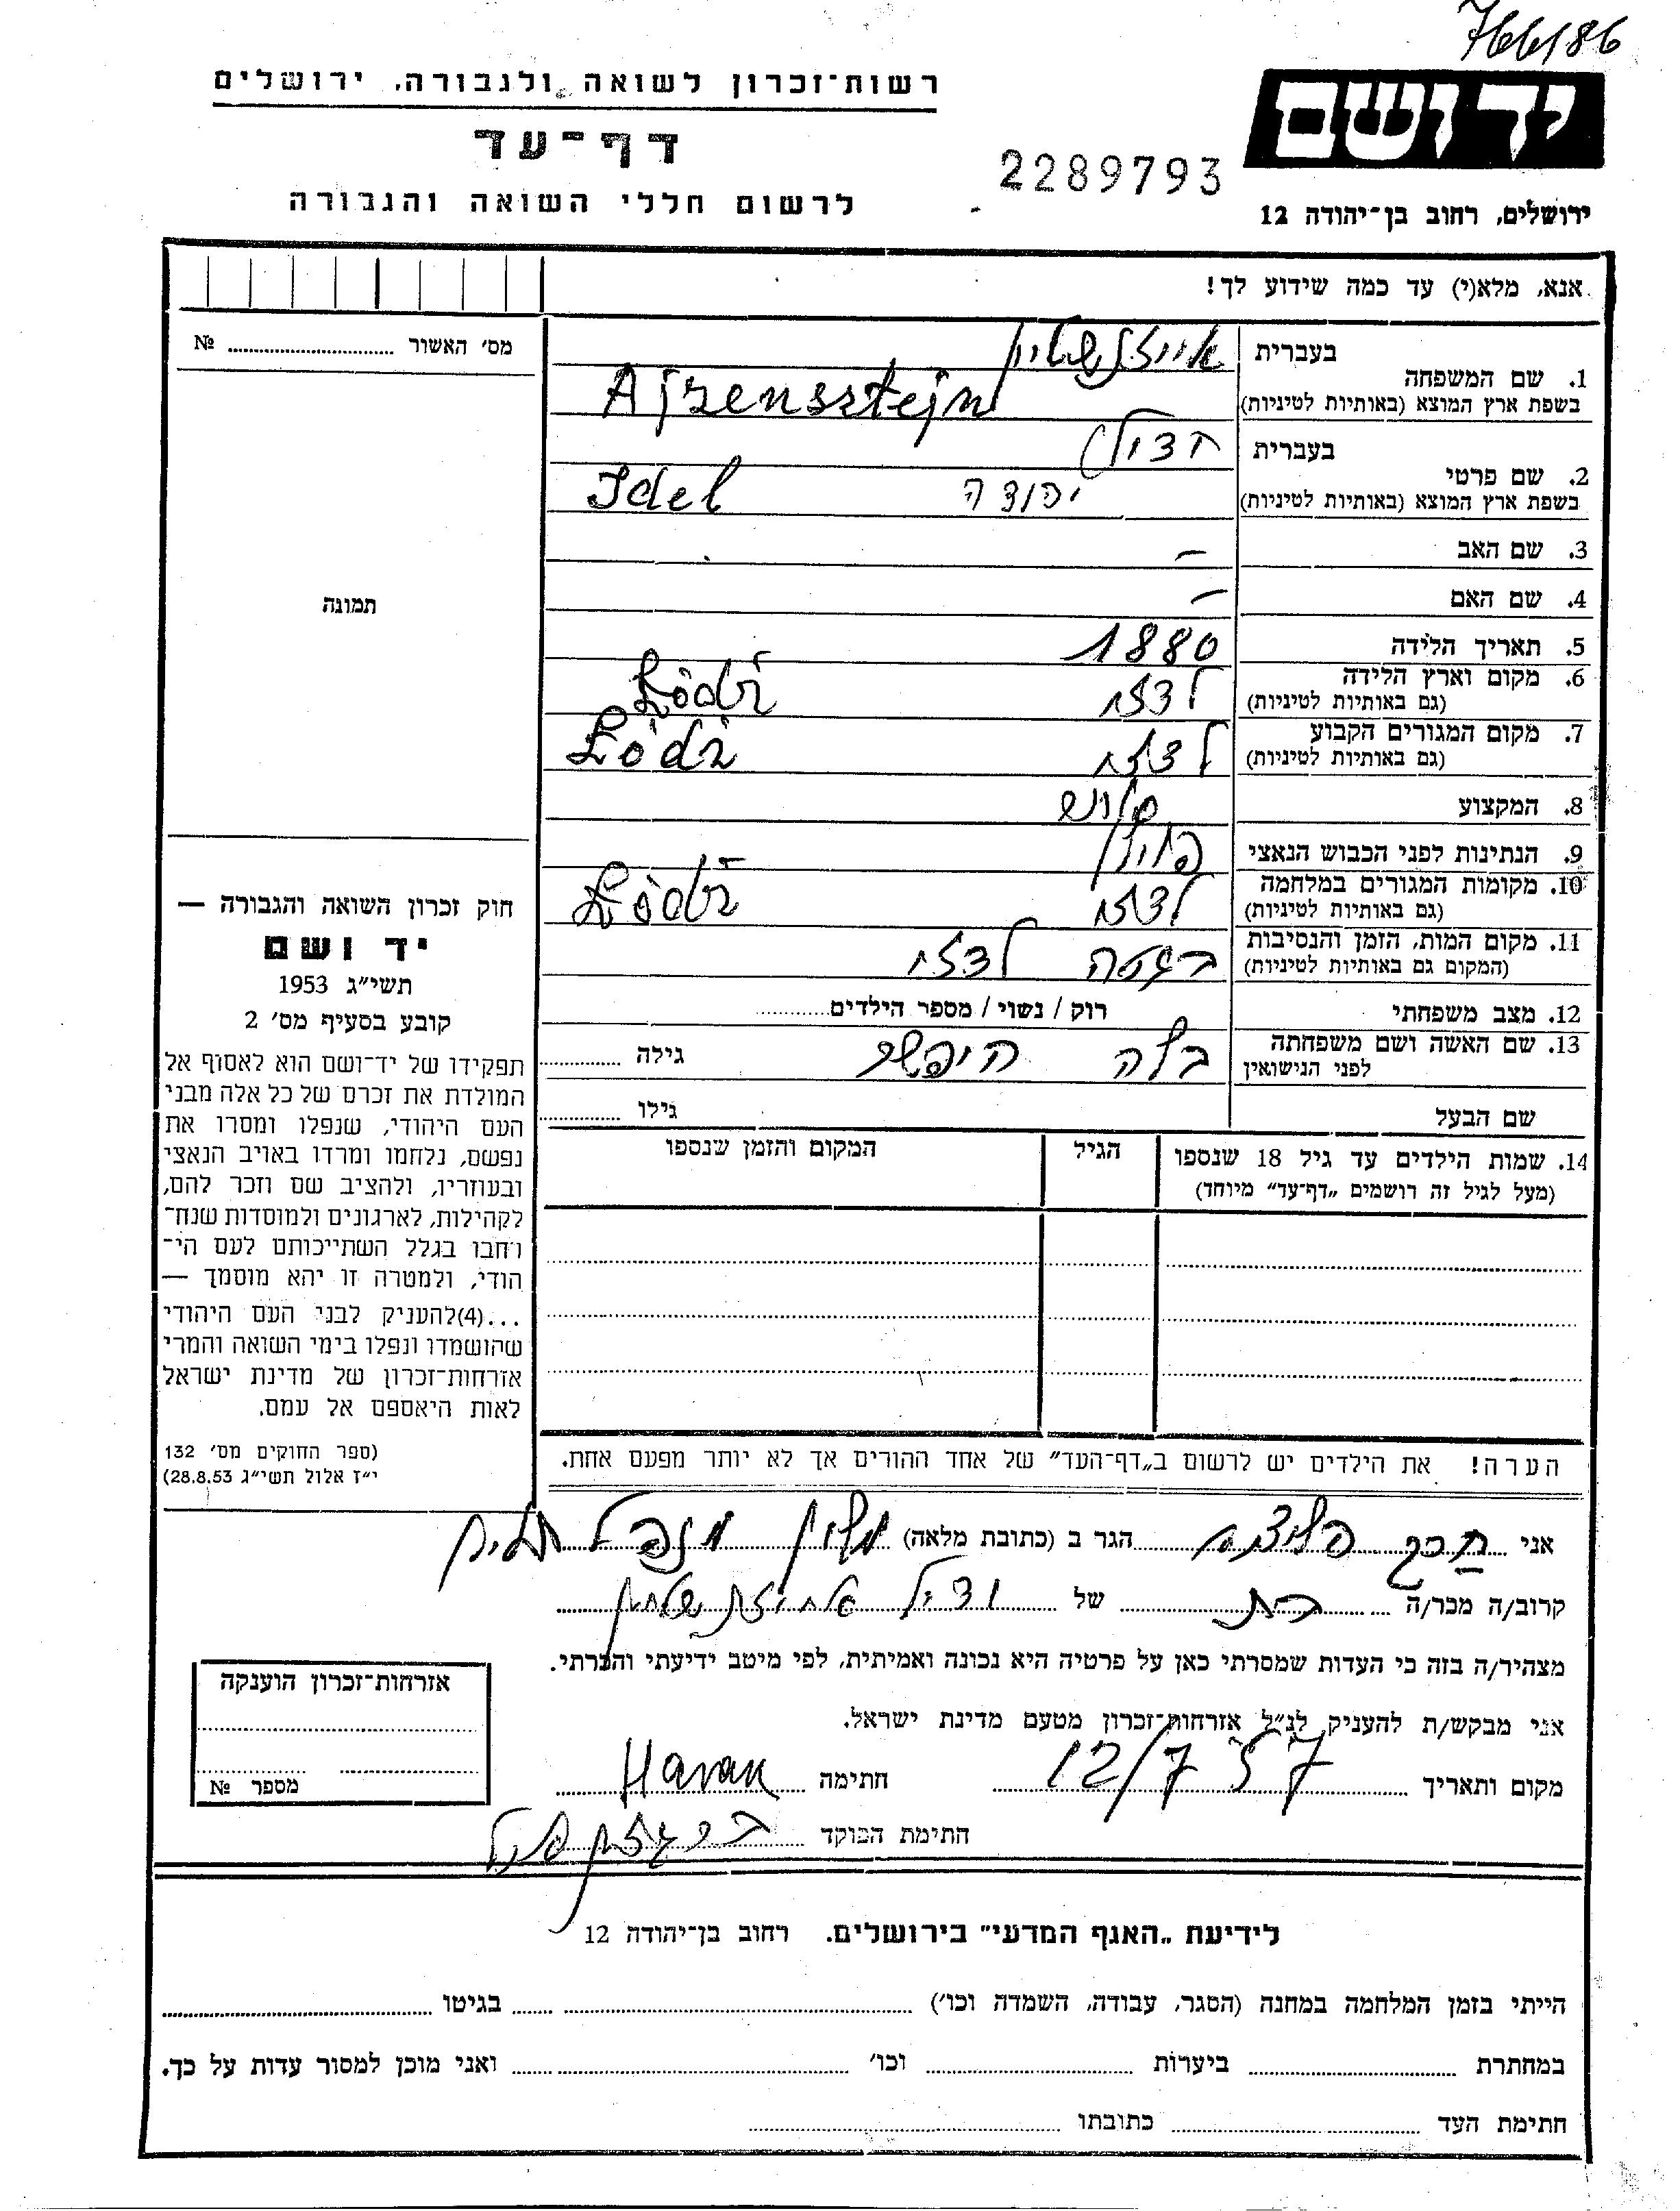 766/86
ידושם
רשות־זכרון לשואה ולגבורה, ירושלים
דף־עד
2289793
לרשום חללי השואה והגבורה
ירושלים, רחוב בן־יהודה 12
אנא, מלא(י) עד כמה שידוע לך!
מס׳ האשור № ........
1. שם המשפחה
בעברית אייזנשטיין
בשפת ארץ המוצא (באותיות לטיניות) Ajzensztejn
2. שם פרטי
בעברית
בשפת ארץ המוצא (באותיות לטיניות) יהודה Idel
3. שם האב –
4. שם האם –
תמונה
5. תאריך הלידה 1880
6. מקום וארץ הלידה
(גם באותיות לטיניות) לודז׳ Łódź
7. מקום המגורים הקבוע
(גם באותיות לטיניות) לודז׳ Łódź
8. המקצוע
9. הנתינות לפני הכבוש הנאצי פולין
10. מקומות המגורים במלחמה
(גם באותיות לטיניות) לודז׳ Łódź
11. מקום המות, הזמן והנסיבות
(המקום גם באותיות לטיניות) בגטו לודז׳
12. מצב משפחתי רוק / נשוי / מספר הילדים........
13. שם האשה ושם משפחתה
לפני הנישואין בלה גילה ........
שם הבעל גילו ........
14. שמות הילדים עד גיל 18 שנספו
(מעל לגיל זה רושמים „דף־עד" מיוחד)
הגיל
המקום והזמן שנספו
חוק זכרון השואה והגבורה —
יד ושם
תשי״ג 1953
קובע בסעיף מס׳ 2
תפקידו של יד־ושם הוא לאסוף אל
המולדת את זכרם של כל אלה מבני
העם היהודי, שנפלו ומסרו את
נפשם, נלחמו ומרדו באויב הנאצי
ובעוזריו, ולהציב שם וזכר להם,
לקהילות, לארגונים ולמוסדות שנח־
רחבו בגלל השתייכותם לעם הי־
הודי, ולמטרה זו יהא מוסמך —
...(4)להעניק לבני העם היהודי
שהושמדו ונפלו בימי השואה והמרי
אזרחות־זכרון של מדינת ישראל
לאות היאספם אל עמם.
(ספר החוקים מס׳ 132
י״ז אלול תשי״ג 28.8.53)
הערה! את הילדים יש לרשום ב„דף־העד" של אחד ההורים אך לא יותר מפעם אחת.
אני ........ הגר ב (כתובת מלאה) ........
קרוב/ה מכר/ה בת של ........
מצהיר/ה בזה כי העדות שמסרתי כאן על פרטיה היא נכונה ואמיתית, לפי מיטב ידיעתי והכרתי.
אני מבקש/ת להעניק לנ״ל אזרחות־זכרון מטעם מדינת ישראל.
מקום ותאריך 12/7 57 חתימה Harak
חתימת הפוקד
אזרחות־זכרון הוענקה
מספר №
לידיעת „האגף המדעי" בירושלים. רחוב בן־יהודה 12
הייתי בזמן המלחמה במחנה (הסגר, עבודה, השמדה וכו׳) ........ בגיטו ........
במחתרת ........ ביערות ........ וכו׳ ........ ואני מוכן למסור עדות על כך.
חתימת העד ........ כתובתו ........